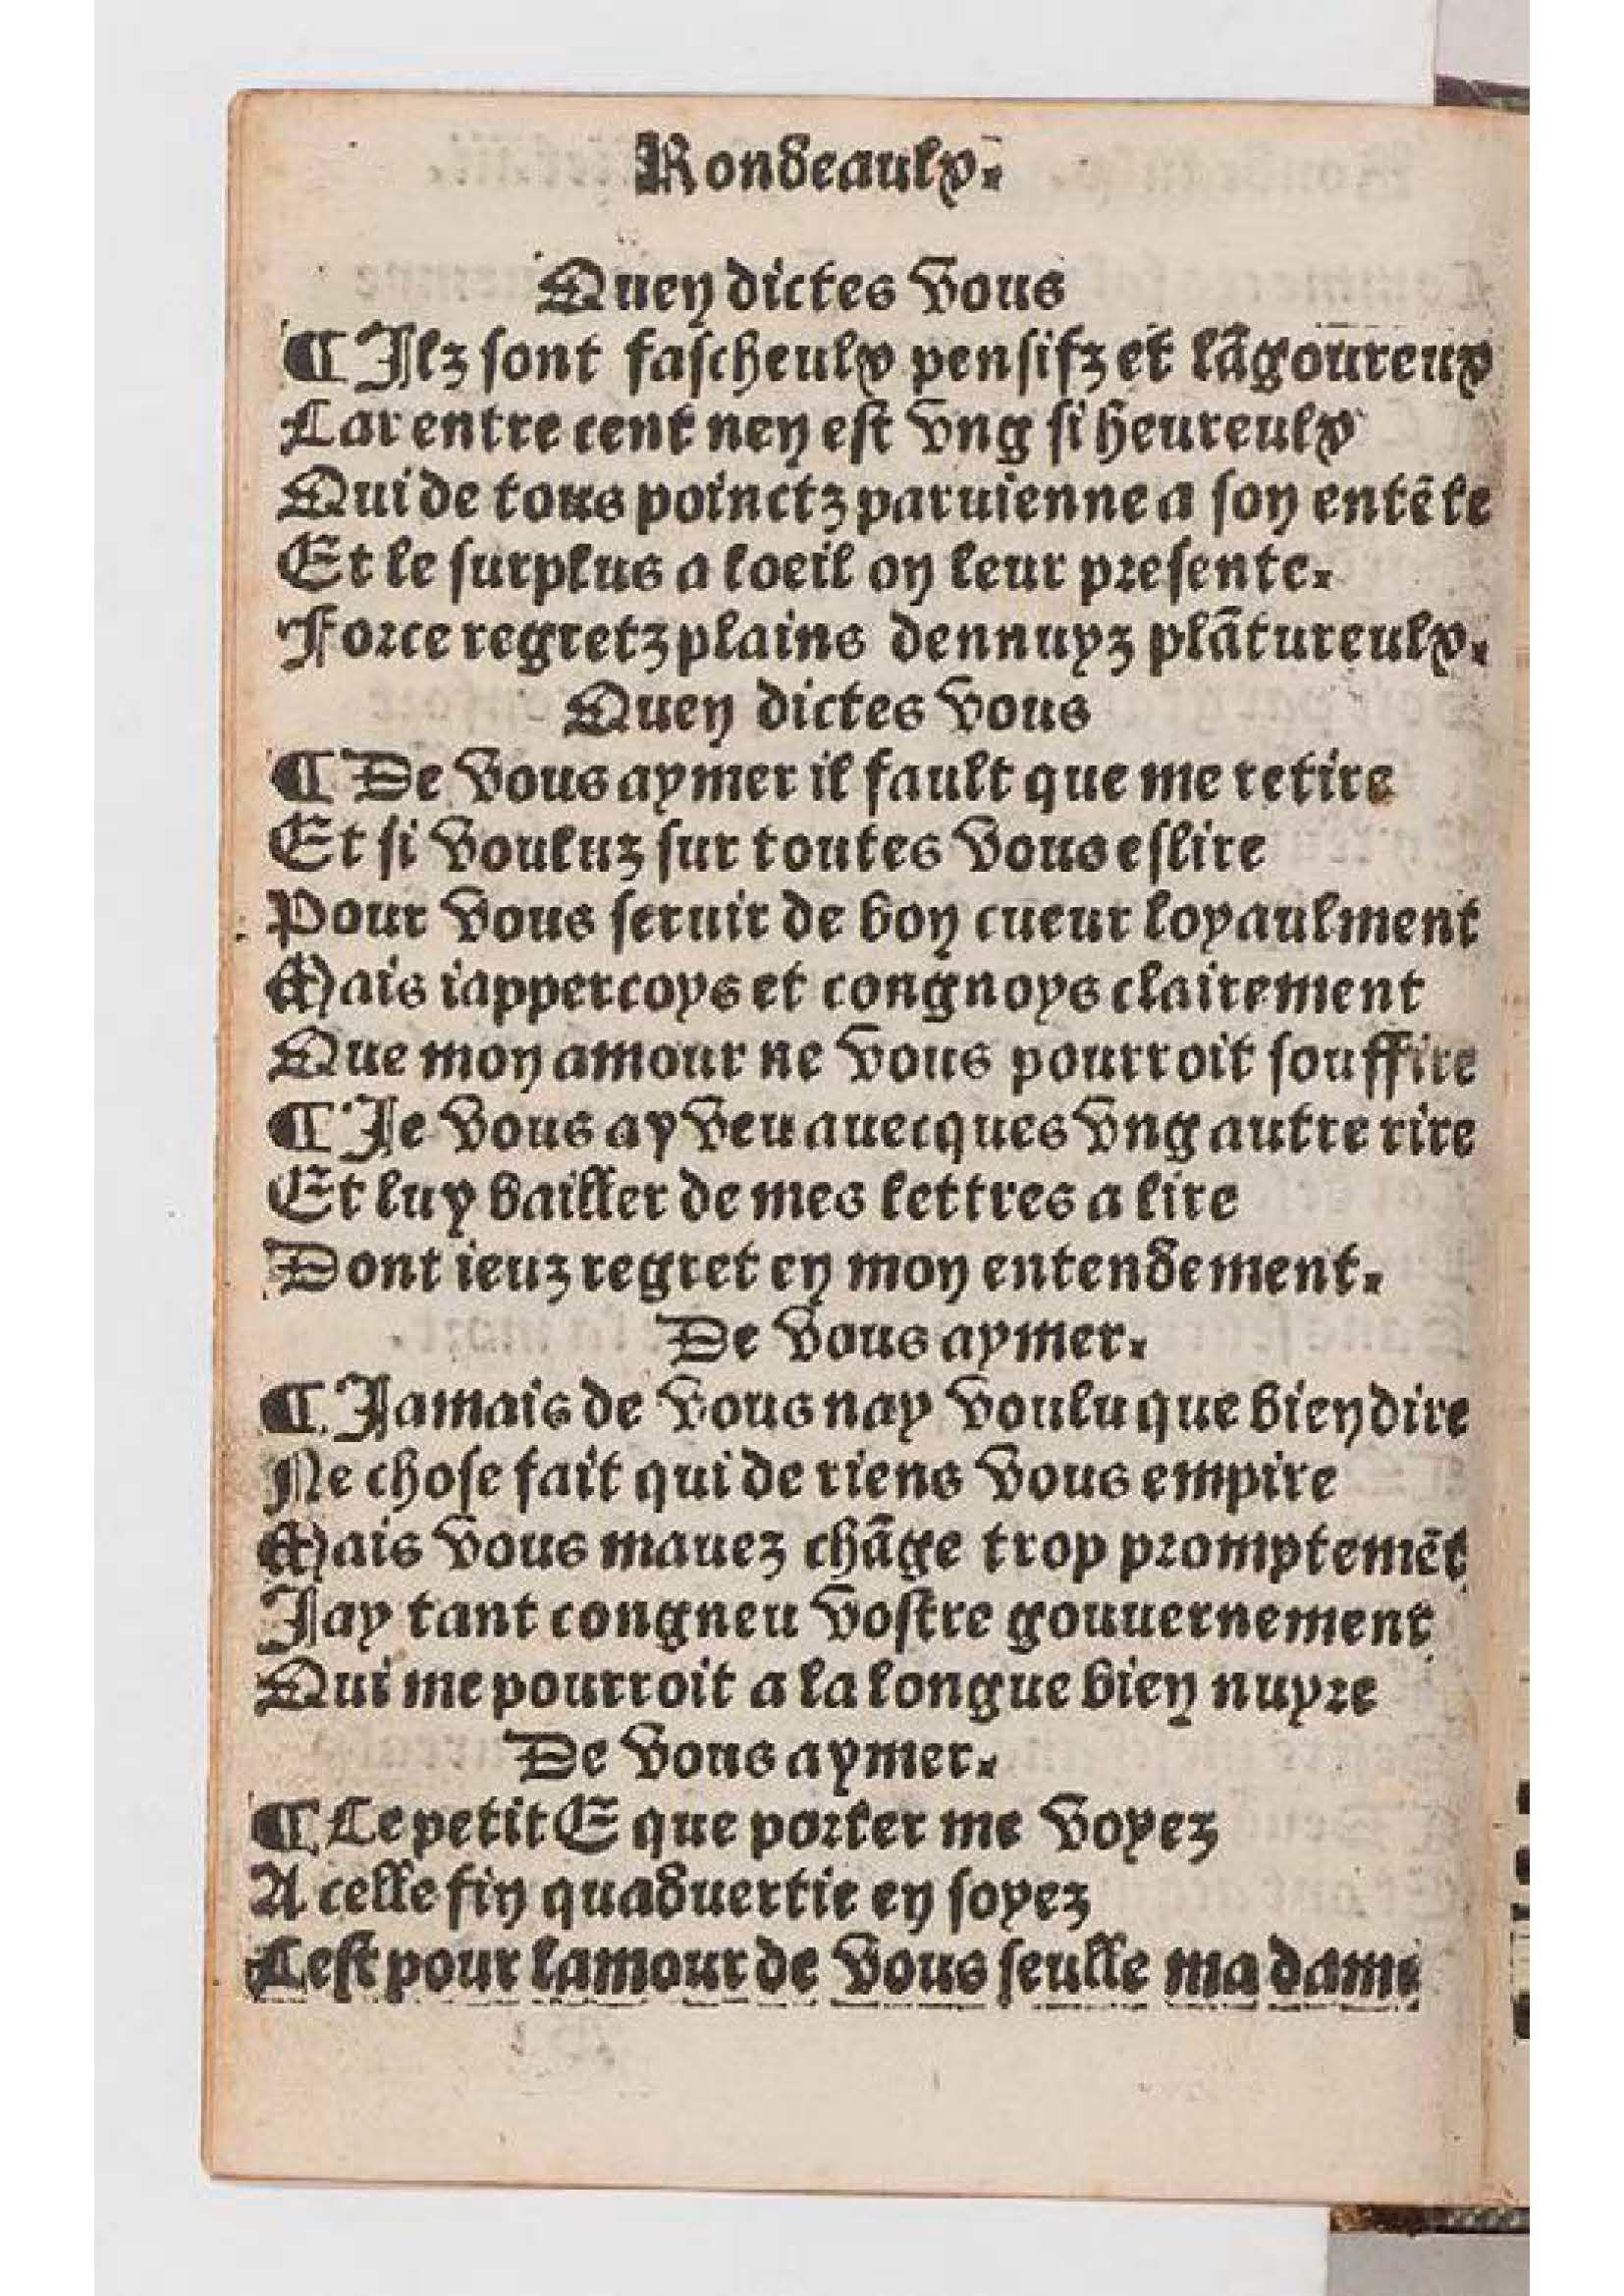 Rondeaulx.
Quen dictes vous
¶ Ilz sont fascheulx pensifz et lãgoureux
Car entre cent nen est vng si heureulx
Qui de tous poinctz paruienne a son entẽte
Et le surplus a loeil on leur presente.
Force regretz plains dennuyz plãtureulx.
Quen dictes vous
¶ De vous aymer il fault que me retire
Et si vouluz sur toutes vous eslire
Pour vous seruir de bon cueur loyaulment
Mais iappercoys et congnoys clairement
Que mon amour ne vous pourroit souffire
¶ Je vous ay veu auecques vng autre rire
Et luy bailler de mes lettres a lire
Dont ieuz regret en mon entendement.
De vous aymer.
¶ Jamais de vous nay voulu que bien dire
Ne chose fait qui de riens vous empire
Mais vous mauez chãge trop promptemẽt
Jay tant congneu vostre gouuernement
Qui me pourroit a la longue bien nuyre
De vous aymer.
¶ Le petit E que porter me voyez
A celle fin quaduertie en soyez
Cest pour lamour de vous seulle ma dame